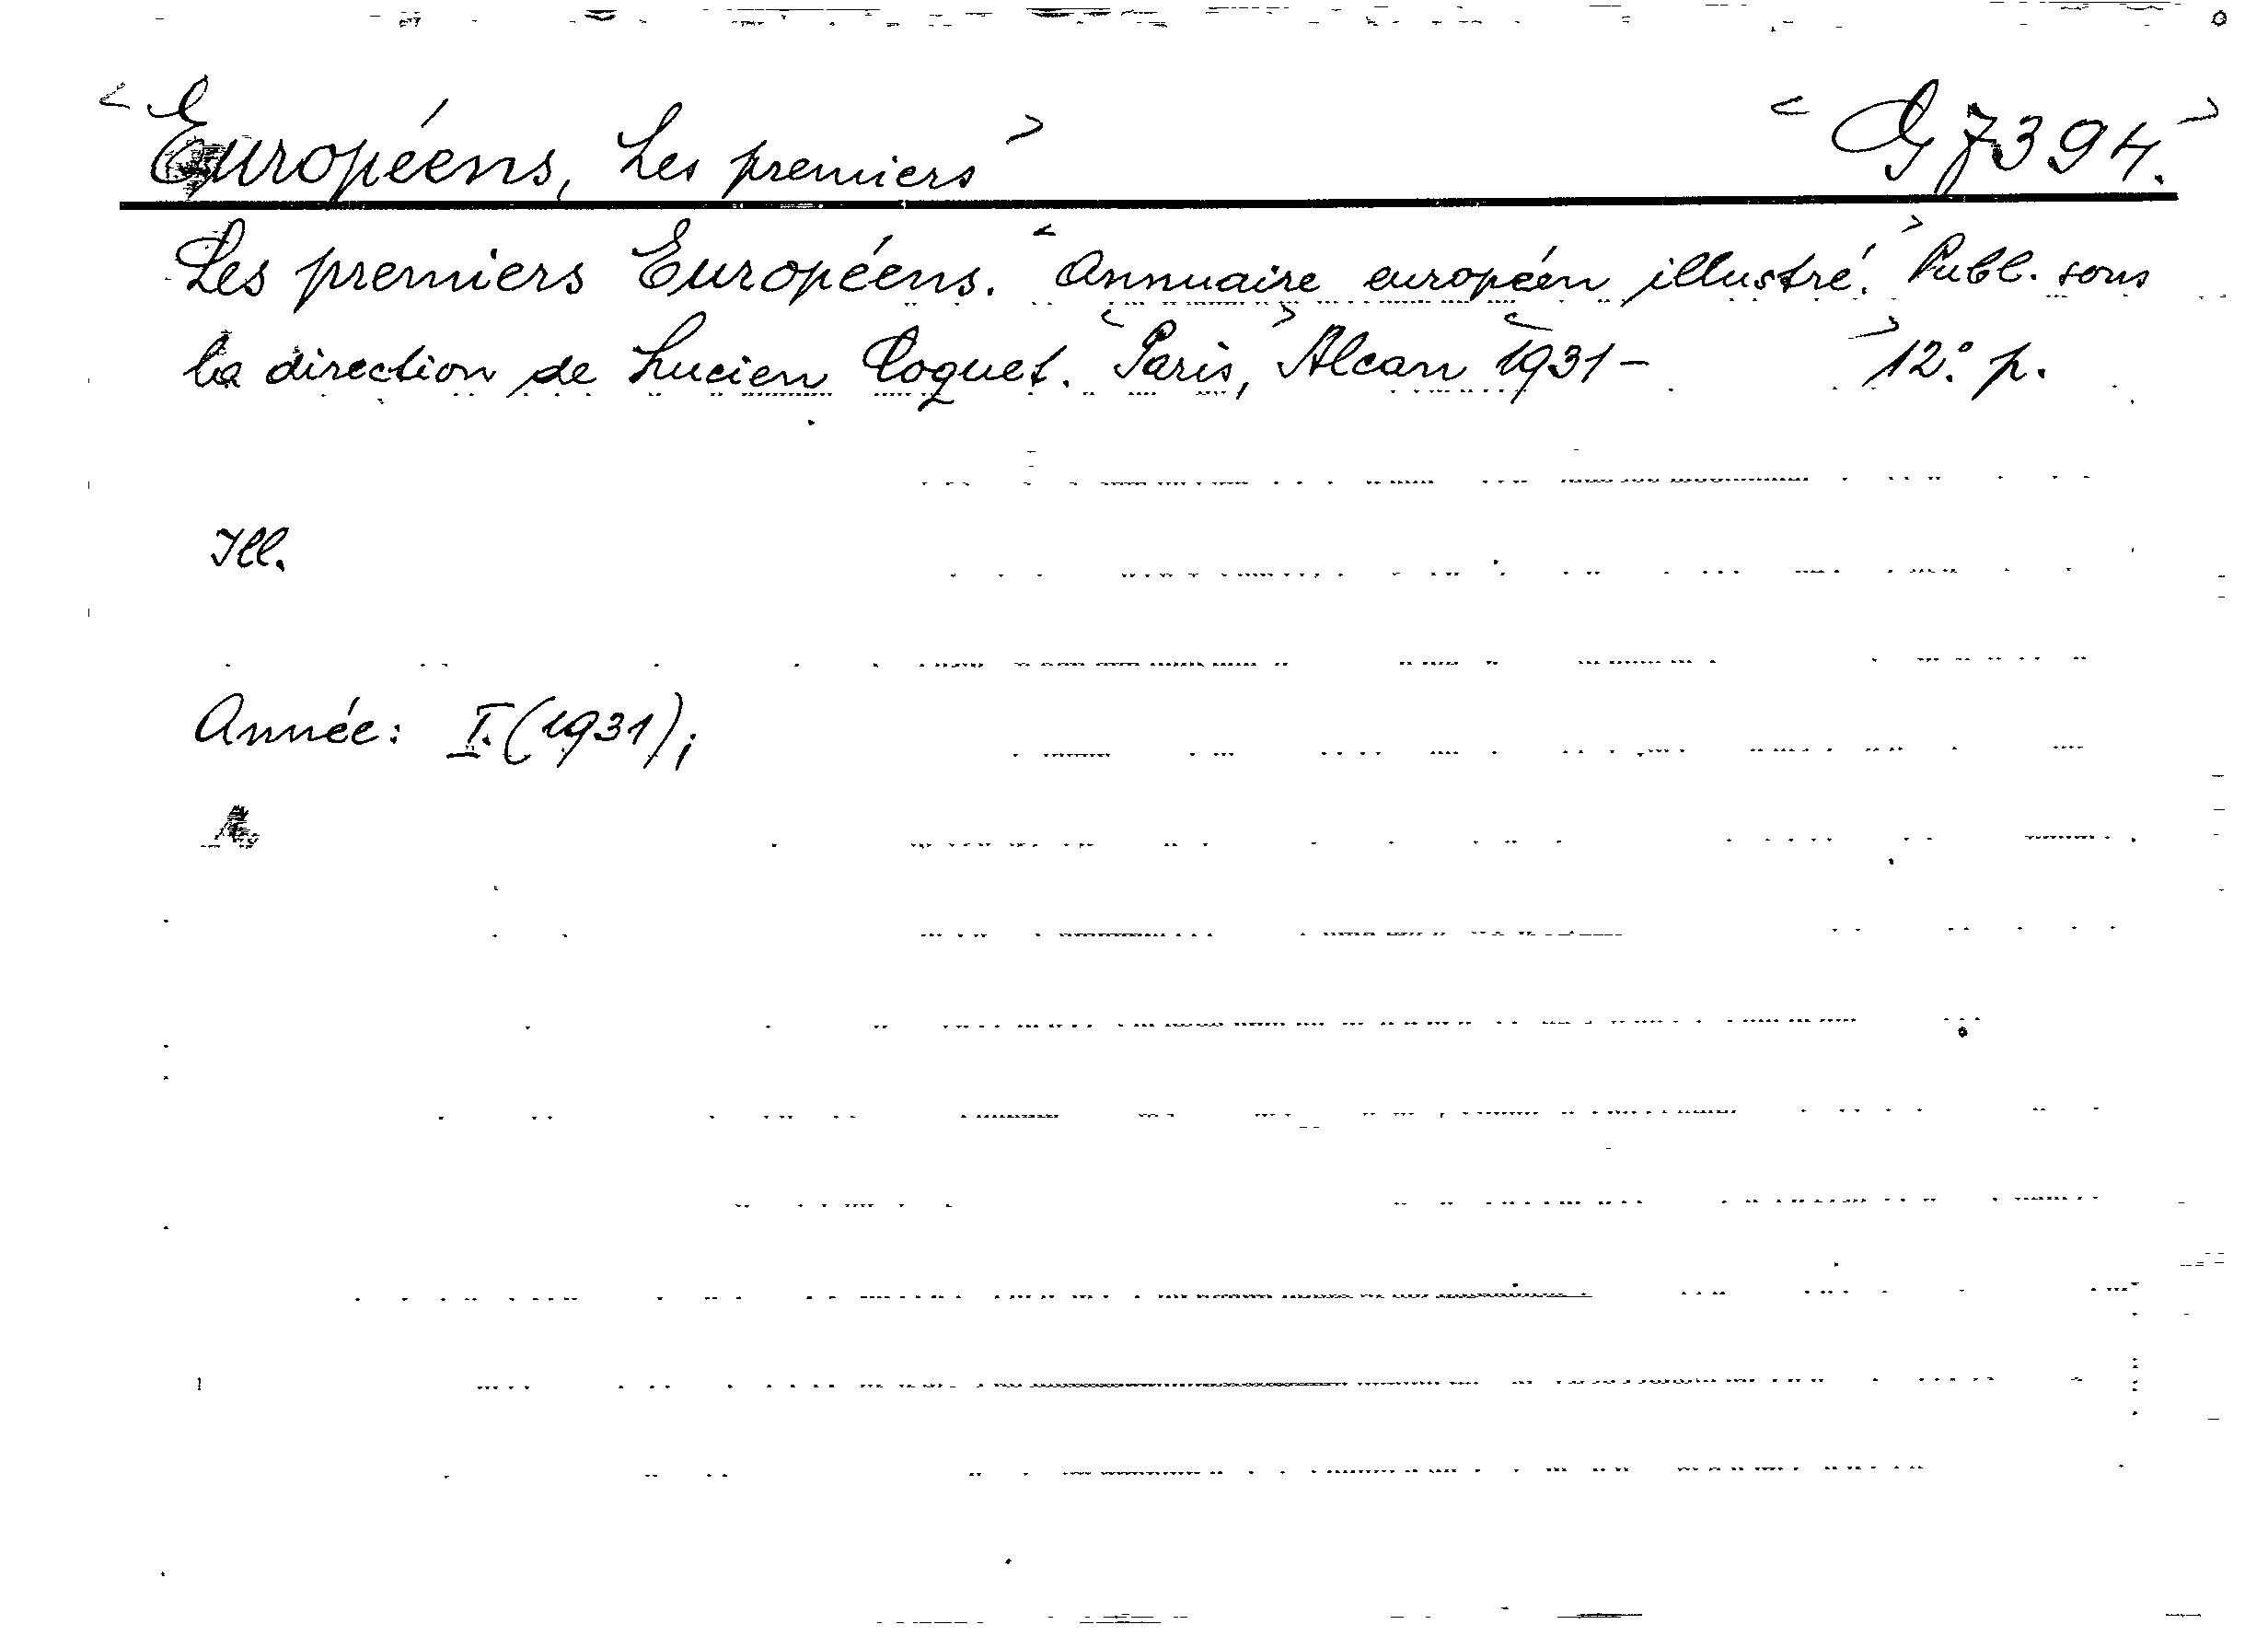 <Européens, Les premiers> <G 7394.>
Les premiers Européens. <Annuaire européen illustré.> Publ. sous
la direction de Lucien Coquet. <Paris,> Alcan <1931 - > 12.° p.
Ill.
Année: I. (1931);